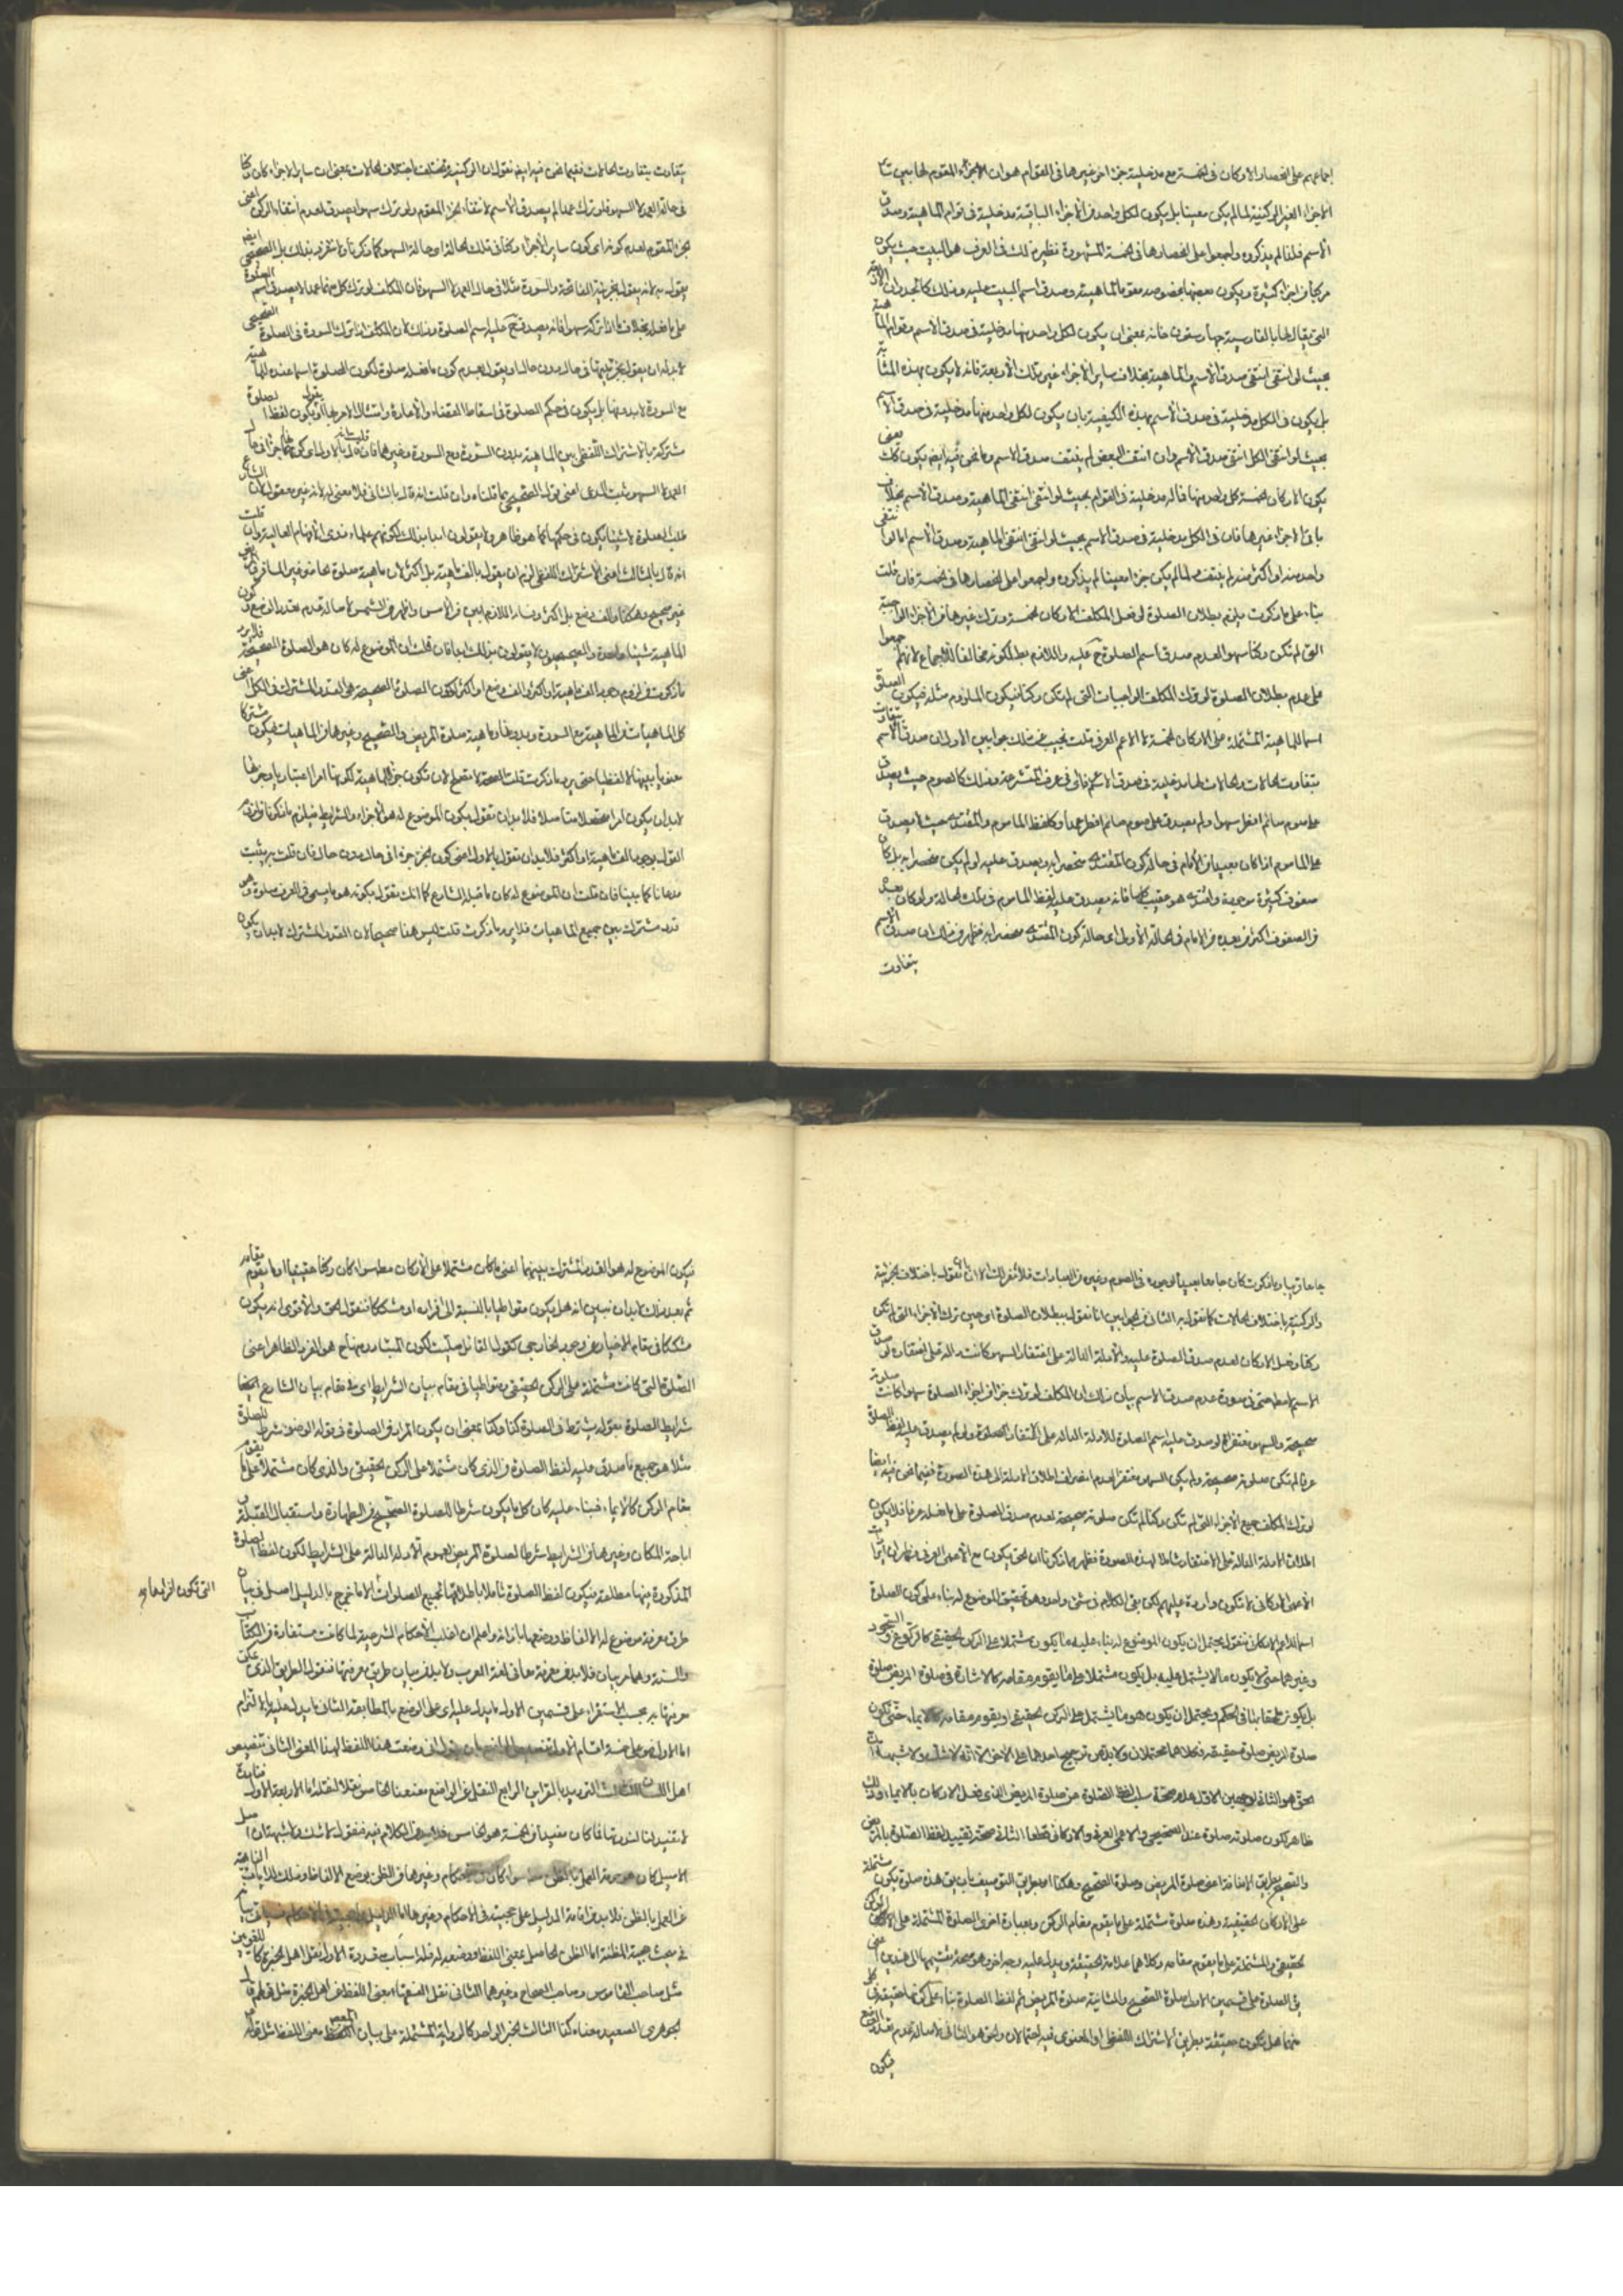 اجماعهم على انحصار الاركان فى الخمسة مع مدخلية جزء اخر غيرها فى القوام هو ان الاجزاء المقوم لها بين سا
الاجزاء الغير الركنية لما لم يكن معينا بل يكون لكل واحد من الاجزاء الباقية مدخلية فى قوام الماهية وصدق
الاسم فلذا لم يذكروه واجمعوا على انحصارها فى الخمسة المشهورة نظير ذلك فى العرف هو البيت حيث يكون
مركبا من اجزاء كثيرة ويكون بعضها بخصوصه مقوما للماهية وصدق اسم البيت عليه وذلك كالجدران الاربعة
التى يقال لها بالفارسية چهار ستون خانه بمعنى ان يكون لكل واحد منها مدخلية فى صدق الاسم وقوام الماهية
بحيث لو انتفى انتفى صدق الاسم والماهية بخلاف ساير الاجزاء غير تلك الاربعة فانه لا يكون بهذه المثابة
بل يكون فى الكل مدخلية فى صدق الاسم بهذه الكيفية بان يكون لكل واحد منها مدخلية فى صدق الاسم
بحيث لو انتفى الكل انتفى صدق الاسم وان انتفى البعض لم ينتف صدق الاسم وما نحن فيه ايضا يكون كك يعنى
يكون الاركان الخمسة كل واحد منها فاله مدخلية فى القوام بحيث لو انتفى انتفى الماهية وصدق الاسم بخلاف
باقى الاجزاء غيرها فان فى الكل مدخلية فى صدق الاسم بحيث لو انتفى انتفى الماهية وصدق الاسم اما لو انتفى
واحد منه او اكثر منه لم ينتف فلما لم يكن جزءا معينا لم يذكروه واجمعوا على انحصارها فى الخمسة فان قلت
بناء على ما ذكرت يلزم بطلان الصلوة لو فعل المكلف الاركان الخمسة وترك غيرها من الاجزاء الواجبة
التى لم تكن ركنا سهوا لعدم صدق اسم الصلوة ح عليه واللازم بط لكونه مخالفا للاجماع لانهم اجمعوا
على عدم بطلان الصلوة لو ترك المكلف الواجبات التى لم تكن ركنا فيكون الملزوم مثله فيكون الصلوة
اسما للماهية المشتملة على الاركان الخمسة لا الاعم العرفى قلت نجيب عن ذلك جوابين الاول ان صدق الاسم يتفاوت
بتفاوت الحالات والحالات لها مدخلية فى صدق الاسم فى عرف المتشرعة وذلك كالصوم حيث يصدق
على صوم صائم افطر سهوا ولم يصدق على صوم صائم افطر عمدا وكلفظ الماموم والمقتدى حيث لا يصدق
على الماموم اذا كان بعيدا من الامام فى حالة كون المقتدى منحصرا به ويصدق عليه لو لم يكن منحصرا به بل كان
صفوف كثيرة موجودة واقتدى هو عقيب كلها فانه يصدق عليه لفظ الماموم فى تلك الحالة ولو كان بعد
من الصفوف اكثر من بعده من الامام فى الحالة الاولى اى حالة كون المقتدى منحصرا به فظهر من ذلك ان صدق الاسم
يتفاوت
يتفاوت بتفاوت الحالات ففيما نحن فيه ايضا نقول ان الركنية يختلف باختلاف الحالات بمعنى ان ساير الاجزاء كان ركنا
فى حالة العمد لا السهو فلو ترك عمدا لم يصدق الاسم لانتفاء الجزء المقوم ولو ترك سهوا يصدق لعدم انتفاء الركن اعنى
الجزء المقوم لعدم كونه اى كون ساير الاجزاء ركنا فى تلك الحالة اى حالة السهو كما ذكرنا ولا نتفرد بذلك بل الصحيحى ايضا
يقول به لانه يقول بجزئية الفاتحة والسورة مثلا فى حال العمد لا السهو فان المكلف لو ترك كل منهما عمدا لا يصدق اسم الصلوة
على ما فعله بخلاف ما اذا تركه سهوا فانه يصدق ح عليه اسم الصلوة وذلك لان المكلف اذا ترك السورة فى الصلوة الصحيحى
لا بد له ان يقول بجزئيتها فى حال دون حال او يقول بعدم كون ما فعله صلوة لكون الصلوة اسما عنده للماهية
مع السورة لا بدونها بل يكون فى حكم الصلوة فى اسقاط القضاء والاعادة وامتثال الامر بها او يقول بكون لفظ الصلوة
مشتركة بالاشتراك اللفظى بين الماهية بدون السورة ومع السورة وغيرها فان قلت انه قال بالاول اى كونهما جزءا فى حال
العمد لا السهو ثبت المدعى اعنى قول الصحيحى بما قلناه وان قلت انه قال بالثانى فلا معنى له لانه غير معقول لان الشارع
طلب الصلوة لا شيئا يكون فى حكمها كما هو ظاهر ولا يقولون ابدا بذلك لكونهم علماء ذوى الافهام العالية وان قلت
انه قال بالثالث اعنى الاشتراك اللفظى لزم ان يقول بالف ماهية بل اكثر لان ماهية صلوة الحاضر غير المسافر
غير صحيح وهكذا والف وضع بل اكثر وفساد اللازم ابين من الامس واظهر من الشمس لاصالة عدم تعدد الوضع وكون
الماهية شيئا واحدا والصحيحيون لا يقولون بذلك ابدا فان قلت ان الموضوع له كان هو الصلوة الصحيحة فلا يرد
ما ذكرت من لزوم وجود الف ماهية او اكثر والف وضع او اكثر لكون الصلوة الصحيحة هى القدر المشترك فى الكل اعنى
كل الماهيات من الماهية مع السورة وبدونها وماهية صلوة المريض والصحيح وغيرها من الماهيات فيكون مشتركا
معنويا بينها لا لفظيا حتى يرد ما ذكرت قلت الصحة لا تصلح لان تكون جزء الماهية لكونها امرا اعتباريا وجزئها
لا بد ان يكون امرا محصلا متاصلا فلا بد ان نقول بكون الموضوع له هو الاجزاء والشرايط فيلزم ما ذكرنا من لزوم
القول بوجود الف ماهية او اكثر فلا بد ان نقول بالاول اعنى كون الجزء جزءا فى حال دون حال فان قلت به يثبت
مدعانا كما بينا فان قلت ان الموضوع له كان ما قبله الشارع كما انك تقول بكونه هو ما يسمى فى العرف صلوة وهو
قدر مشترك بين جميع الماهيات فلا يرد ما ذكرت قلت ليس هنا صحيحا لان القدر المشترك لا بد ان يكون
جامعا قريبا وما ذكرت كان جامعا بعيدا لوجوده فى الصوم وغيره من العبادات فلا مفر لك الا ان تقول باختلاف الجزئية
والركنية باختلاف الحالات كما نقول به الثانى من الجوابين انا نقول ببطلان الصلوة اى حين ترك الاجزاء التى لم تكن
ركنا وفعل الاركان لعدم صدق الصلوة عليه والادلة الدالة على اغتفار السهو كانت دالة على اغتفاره لو صدق
الاسم لا مطلقا حتى فى صورة عدم صدق الاسم بيان ذلك ان المكلف لو ترك جزءا من اجزاء الصلوة سهوا كانت صلوته
صحيحة والسهو مغتفرا لو صدق عليه اسم الصلوة للادلة الدالة على اغتفار الصلوة ولو لم يصدق عليه لفظ الصلوة
عرفا لم تكن صلوته صحيحة ولم يكن السهو مغتفرا لعدم انصراف اطلاق الادلة الى هذه الصورة ففيما نحن فيه ايضا
لو ترك المكلف جميع الاجزاء التى لم تكن ركنا لم تكن صلوته صحيحة لعدم صدق الصلوة على ما فعله عرفا فلا يكون
اطلاق الادلة الدالة على الاغتفار شاملا لهذه الصورة فظهر بما ذكرنا ان الحق يكون مع الاعمى العرفى
الاعمى الاركانى لا تكون واردة عليهم لكن بقى الكلام فى شئ واحد وهو تحقيق الموضوع له بناء على كون الصلوة
اسما للاعم الاركانى فنقول يحتمل ان يكون الموضوع له بناء عليه ما يكون مشتملا على الركن الحقيقى كالركوع والسجود
وغيرهما حتى لا يكون ما لا يشتمل عليه بل يكون مشتملا على ما يقوم مقامه كالاشارة فى صلوة المريض صلوة
بل يكون ملحقا بها فى الحكم ويحتمل ان يكون هو ما يشتمل على الركن الحقيقى او يقوم مقامه كالايماء حتى تكون
صلوة المريض صلوة حقيقة فكلاهما محتملان ولا بد من ترجيح احدهما على الاخر الا انه لا شك ولا شبهة ان
الحق هو الثانى لوجهين الاول عدم صحة سلب لفظ الصلوة عن صلوة المريض الذى فعل الاركان بالايماء وذلك
ظاهر لكون صلوته صلوة عند الصحيحى والاعمى العرفى والاركانى قطعا الثانى صحة تقييد لفظ الصلوة بالمريض
والصحيح بطريق الاضافة اعنى صلوة المريض وصلوة الصحيح وهكذا او بطريق التوصيف بان يق هذه صلوة يكون مشتملة
على الاركان الحقيقية وهذه صلوة مشتملة على ما يقوم مقام الركن وبعبارة اخرى الصلوة المشتملة على الركن
الحقيقى والمشتملة على ما يقوم مقامه وكلاهما علامة الحقيقة ويدل عليه وجه اخر وهو صحة تقسيمها الى هذين اعنى
يق الصلوة على قسمين الاول صلوة الصحيح والثانية صلوة المريض ثم لفظ الصلوة بناء على كونها حقيقة فى كل
منهما هل يكون حقيقة بطريق الاشتراك اللفظى او المعنوى فيه احتمالان والحق هو الثانى لاصالة عدم تعدد الوضع
فيكون
فيكون الموضوع له هو القدر المشترك بينهما اعنى ما كان مشتملا على الاركان مطلقا سواء كان ركنا حقيقيا او ما يقوم مقامه
ثم بعد ذلك لا بد ان نبين انه هل يكون متواطيا بالنسبة الى افراده او مشككا فنقول الحق والاقوى انه يكون
مشككا فى مقام الاخبار عن وجوده الخارجى كقول القائل صليت لكون المتبادر منها ح هو الفرد الظاهر اعنى
الصلوة التى كانت مشتملة على الركن الحقيقى ومتواطيا فى مقام بيان الشرايط اى فى مقام بيان الشارع ايضا
شرايط الصلوة بقوله يشترط فى الصلوة كذا وكذا بمعنى ان يكون المراد من الصلوة فى قوله الوضوء شرط للصلوة
مثلا هو جميع ما صدق عليه لفظ الصلوة من الذى كان مشتملا على الركن الحقيقى والذى كان مشتملا على ما يقوم
مقام الركن كالايماء فبناء عليه كان كل ما يكون شرطا للصلوة الصحيح من الطهارة واستقبال القبلة و
اباحة المكان وغيرها من الشرايط شرطا لصلوة المريض لعموم الادلة الدالة على الشرايط لكون لفظ الصلوة
المذكورة فيها مطلقة فيكون لفظ الصلوة شاملا باطلاقها لجميع الصلوات الا ما خرج بالدليل اصل فى بيان
التى تكون افرادها
طرق معرفة موضوع له الالفاظ ووضعها بازائه واعلم ان اغلب الاحكام الشرعية لما كانت مستفادة من الكتاب
والسنة وهما عربيان فلا بد من معرفة معانى لغة العرب ولا بد من بيان طريق معرفتها فنقول الطريق الذى يمكن
معرفتها به بحسب الاستقراء على قسمين الاول ما يدل عليه اى على الوضع بالمطابقة الثانى ما يدل عليه بالالتزام
اما الاول فهو على خمسة اقسام الاول تنصيص الواضع بان يقول انى وضعت هذا اللفظ لهذا المعنى الثانى تنصيص
لا تفيد لنا لندرتها فما كان مفيدا من الخمسة هو الخامس فلا بد من الكلام فيه فنقول لا شك ولا شبهة ان
عن العمل بالظن فلا بد من اقامة الدليل على حجيته فى الاحكام وغيرها
فى مبحث حجية المظنة اما الظن الحاصل بمعنى اللفظ ووضعه له فله اسباب متعددة الاول نقل اهل الخبرة كاللغويين
مثل صاحب القاموس وصاحب الصحاح وغيرهما الثانى نقل الفقهاء معنى اللفظ من اهل الخبرة مثل قولهم قال
الجوهرى الصعيد معناه كذا الثالث الخبر الواحد كالرواية المشتملة على بيان المعصوم معنى اللفظ مثل قوله